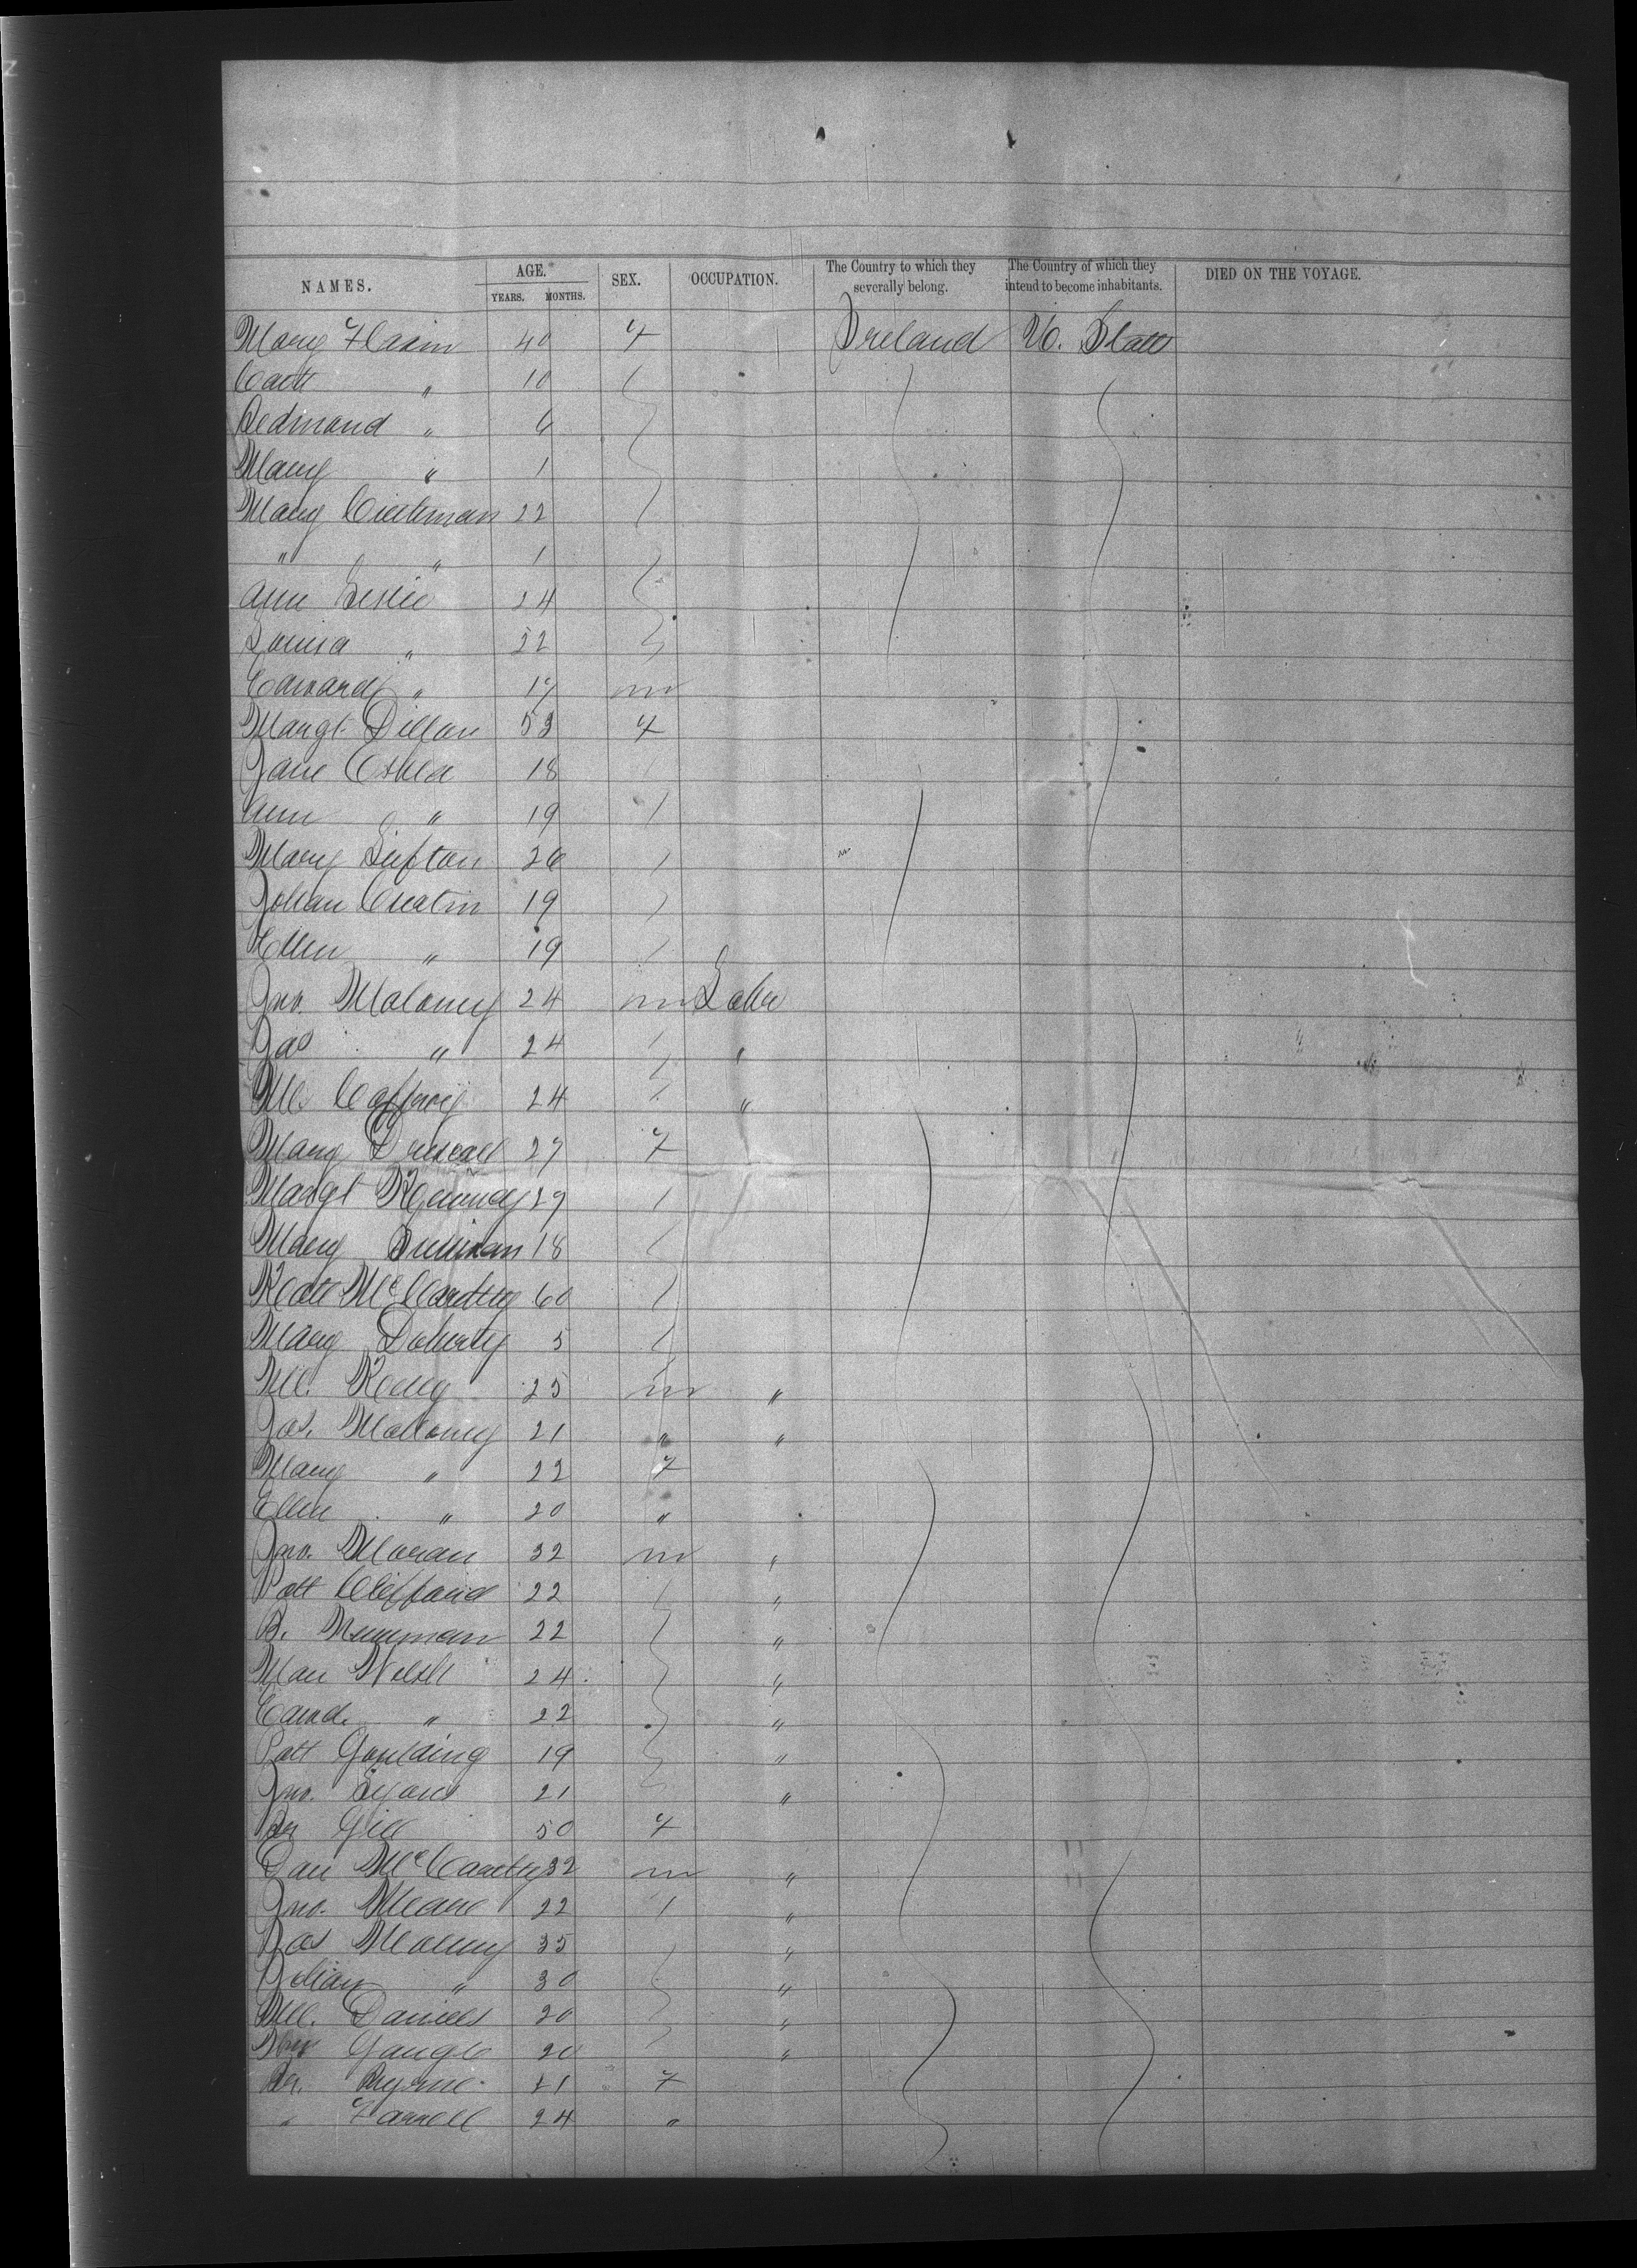 NAMES. AGE. YEARS. MONTHS. SEX. OCCUPATION. The Country to which they severally belong. The Country of which they intend to become inhabitants. DIED ON THE VOYAGE.
Mary 40 f Ireland U. States
Cath " 10
Redmond " 6
Mary " 1
Mary 22
" " 1
Ann Leslie 24
Louisa " 22
Edward " 17 m
Margt Dillon 53 f
Jane 18
Ann " 19
Mary 26
Johan 19
Ellen " 19
Jno. Maloney 24 m Labr
Jas " 24 "
Ml. Caffrey 24 "
Mary Driscoll 27 f
Margt Kennedy 29
Mary 18
Kate McCarthy 60
Mary Doherty 5
Ml. Kelly 25 m "
Jas. Maloney 21 " "
Mary " 22 f
Ellen " 20 "
Jno. Moran 32 m "
Patt Clifford 22 "
B. 22 "
Welsh 24 "
Edwd. " 22 "
Patt Goulding 19 "
Jno. Lyons 21 "
Br Gill 50 f
Dan McCarthy 32 m "
Jno. Meane 22 "
Jas 35 "
" 30 "
Ml. Daniels 20 "
Thos 20 "
Br. Byrne 21 f
" Farrell 24 "